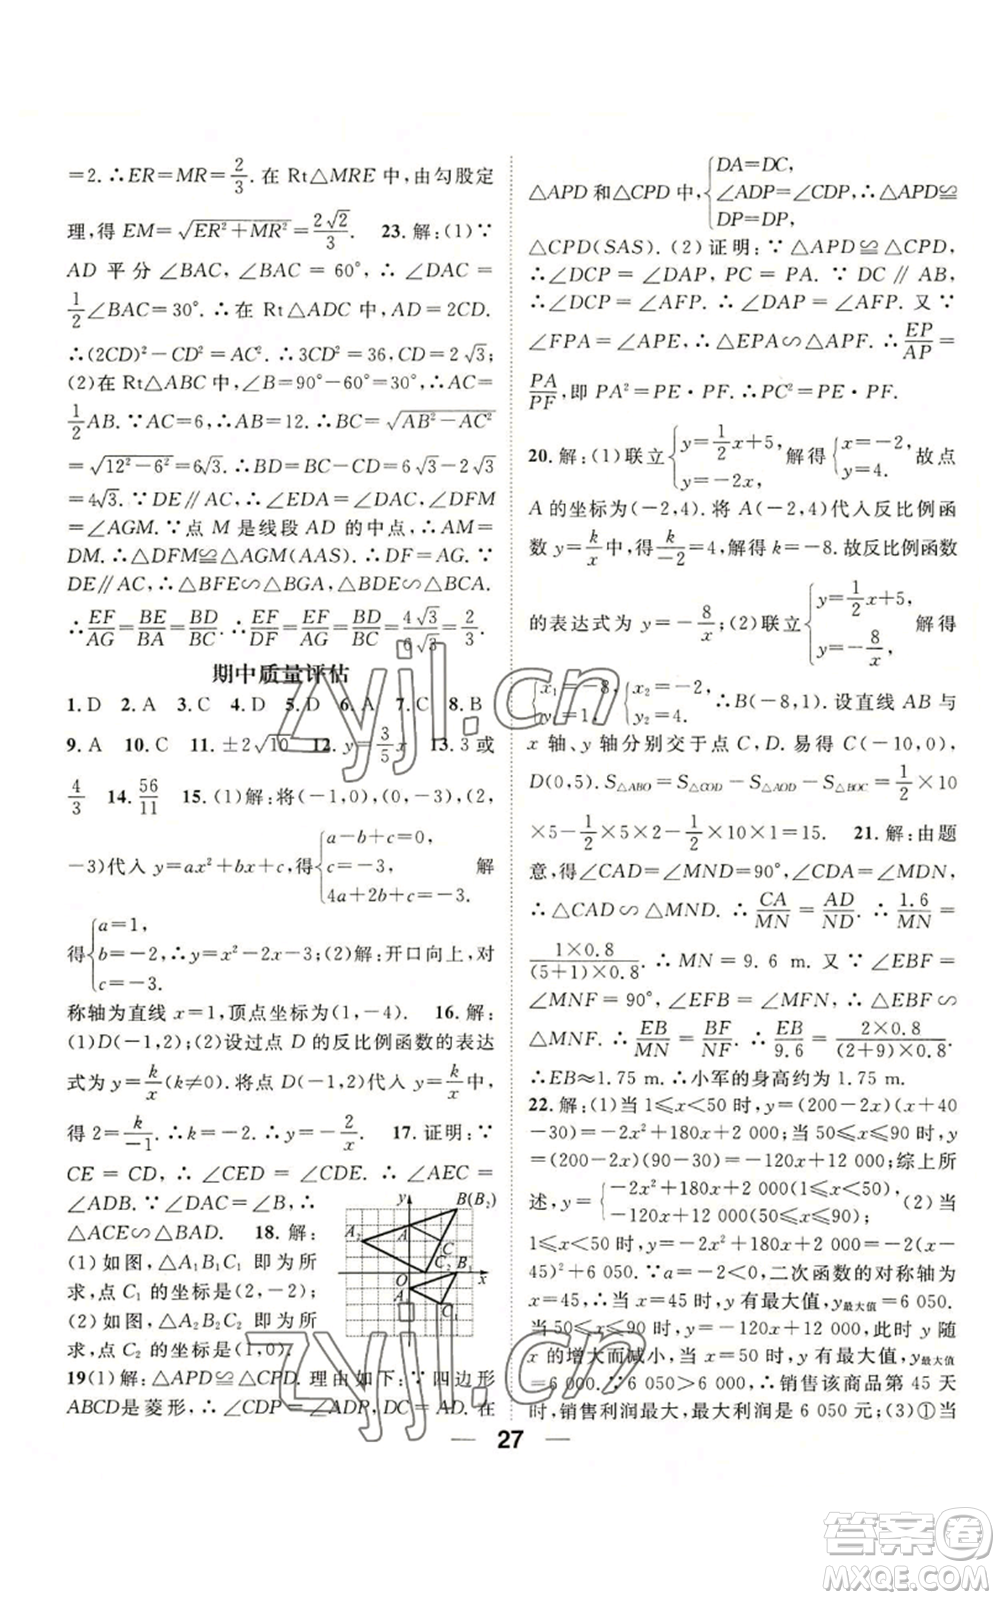 =2.∴ER=MR=2/3. 在 Rt△MRE 中,由勾股定
理,得 EM=√(ER²+MR²)=2√2/3. 23.解:(1)∵
AD 平分 ∠BAC, ∠BAC = 60°, ∴ ∠DAC =
1/2∠BAC=30°.∴ 在 Rt△ADC 中,AD=2CD.
∴(2CD)²-CD²=AC².∴3CD²=36,CD=2√3;
(2)在 Rt△ABC 中,∠B=90°-60°=30°,∴AC=
1/2AB.∵AC=6,∴AB=12.∴BC=√(AB²-AC²)
=√(12²-6²)=6√3.∴BD=BC-CD=6√3-2√3
=4√3.∵DE∥AC,∴∠EDA=∠DAC,∠DFM
=∠AGM.∵点 M 是线段 AD 的中点,∴AM=
DM.∴△DFM≌△AGM(AAS).∴DF=AG.∵
DE∥AC,∴△BFE∽△BGA,△BDE∽△BCA.
∴EF/AG=BE/BA=BD/BC.∴EF/DF=EF/AG=BD/BC=4√3/6√3=2/3.
期中质量评估
1.D 2.A 3.C 4.D 5.D 6.A 7.C 8.B
9.A 10.C 11.±2√10 12.y=3/5x 13.3 或
4/3 14.56/11 15.(1)解:将(-1,0),(0,-3),(2,
-3)代入 y=ax²+bx+c,得{a-b+c=0, c=-3, 4a+2b+c=-3. 解
得{a=1, b=-2, c=-3. ∴y=x²-2x-3;(2)解:开口向上,对
称轴为直线 x=1,顶点坐标为(1,-4). 16.解:
(1)D(-1,2);(2)设过点 D 的反比例函数的表达
式为 y=k/x(k≠0).将点 D(-1,2)代入 y=k/x中,
得 2=k/-1.∴k=-2.∴y=-2/x. 17.证明:∵
CE = CD, ∴ ∠CED = ∠CDE. ∴ ∠AEC =
∠ADB.∵∠DAC=∠B,∴
△ACE∽△BAD. 18.解:
(1)如图,△A₁B₁C₁ 即为所
求,点 C₁ 的坐标是(2,-2);
(2)如图,△A₂B₂C₂ 即为所
求,点 C₂ 的坐标是(1,0).
y B(B₂)
A₂ A C
C₂ B₁
O x
A₁ C₁
19(1)解:△APD≌△CPD.理由如下:∵四边形
ABCD是菱形,∴∠CDP=∠ADP,DC=AD.在
△APD 和△CPD 中,{DA=DC, ∠ADP=∠CDP, DP=DP, ∴△APD≌
△CPD(SAS). (2) 证明: ∵ △APD ≌ △CPD,
∴ ∠DCP = ∠DAP, PC = PA. ∵ DC ∥ AB,
∴ ∠DCP = ∠AFP. ∴ ∠DAP = ∠AFP. 又 ∵
∠FPA = ∠APE, ∴ △EPA∽△AFP. ∴ EP/AP=
PA/PF,即 PA²=PE·PF.∴PC²=PE·PF.
20.解:(1)联立{y=1/2x+5, y=-2x, 解得{x=-2, y=4. 故点
A 的坐标为(-2,4).将 A(-2,4)代入反比例函
数 y=k/x中,得k/-2=4,解得 k=-8.故反比例函数
的表达式为 y=-8/x;(2)联立{y=1/2x+5, y=-8/x, 解得
{x₁=-8, y₁=1. {x₂=-2, y₂=4. ∴B(-8,1).设直线 AB 与
x 轴、y 轴分别交于点 C,D.易得 C(-10,0),
D(0,5).S△ABO=S△COD-S△AOD-S△BOC=1/2×10
×5-1/2×5×2-1/2×10×1=15. 21.解:由题
意,得∠CAD=∠MND=90°,∠CDA=∠MDN,
∴△CAD∽△MND. ∴ CA/MN=AD/ND. ∴ 1.6/MN=
1×0.8/(5+1)×0.8. ∴ MN = 9.6 m. 又 ∵ ∠EBF =
∠MNF = 90°, ∠EFB = ∠MFN, ∴ △EFB ∽
△MNF.∴EB/MN=BF/NF.∴EB/9.6=2×0.8/(2+9)×0.8.
∴EB≈1.75 m.∴小军的身高约为 1.75 m.
22.解:(1)当 1≤x<50 时,y=(200-2x)(x+40
-30)=-2x²+180x+2 000;当 50≤x≤90 时,y
=(200-2x)(90-30)=-120x+12 000;综上所
述,y={-2x²+180x+2 000(1≤x<50), -120x+12 000(50≤x≤90); (2) 当
1≤x<50 时,y=-2x²+180x+2 000=-2(x-
45)²+6 050.∵a=-2<0,二次函数的对称轴为
x=45,∴当 x=45 时,y 有最大值,y最大值=6 050.
当 50≤x≤90 时,y=-120x+12 000,此时 y 随
x 的增大而减小,当 x=50 时,y 有最大值,y最大值
=6 000.∵6 050>6 000,∴销售该商品第 45 天
时,销售利润最大,最大利润是 6 050 元;(3)①当
27
zyjl.cn
zyjl.cn
答案圈
MXQE.COM